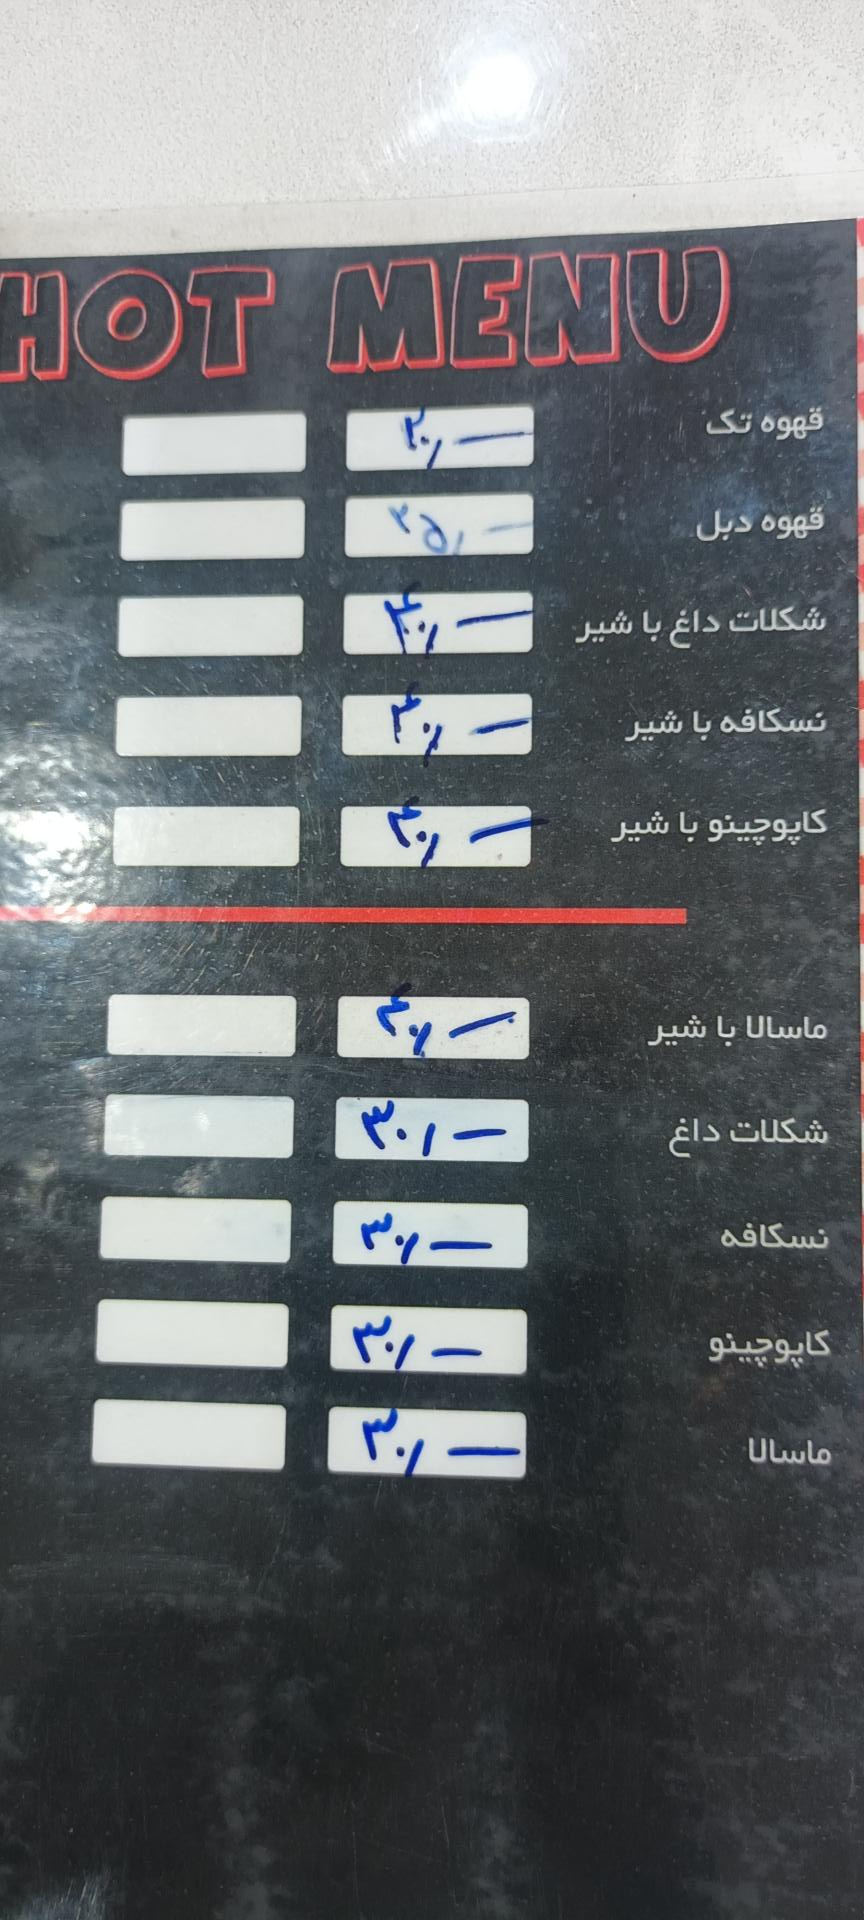 HOT MENU
قهوه تک ۲۰/—
قهوه دبل ۲۵/—
شکلات داغ با شیر ۴۰/—
نسکافه با شیر ۴۰/—
کاپوچینو با شیر ۴۰/—
ماسالا با شیر ۴۰/—
شکلات داغ ۳۰/—
نسکافه ۳۰/—
کاپوچینو ۳۰/—
ماسالا ۳۰/—